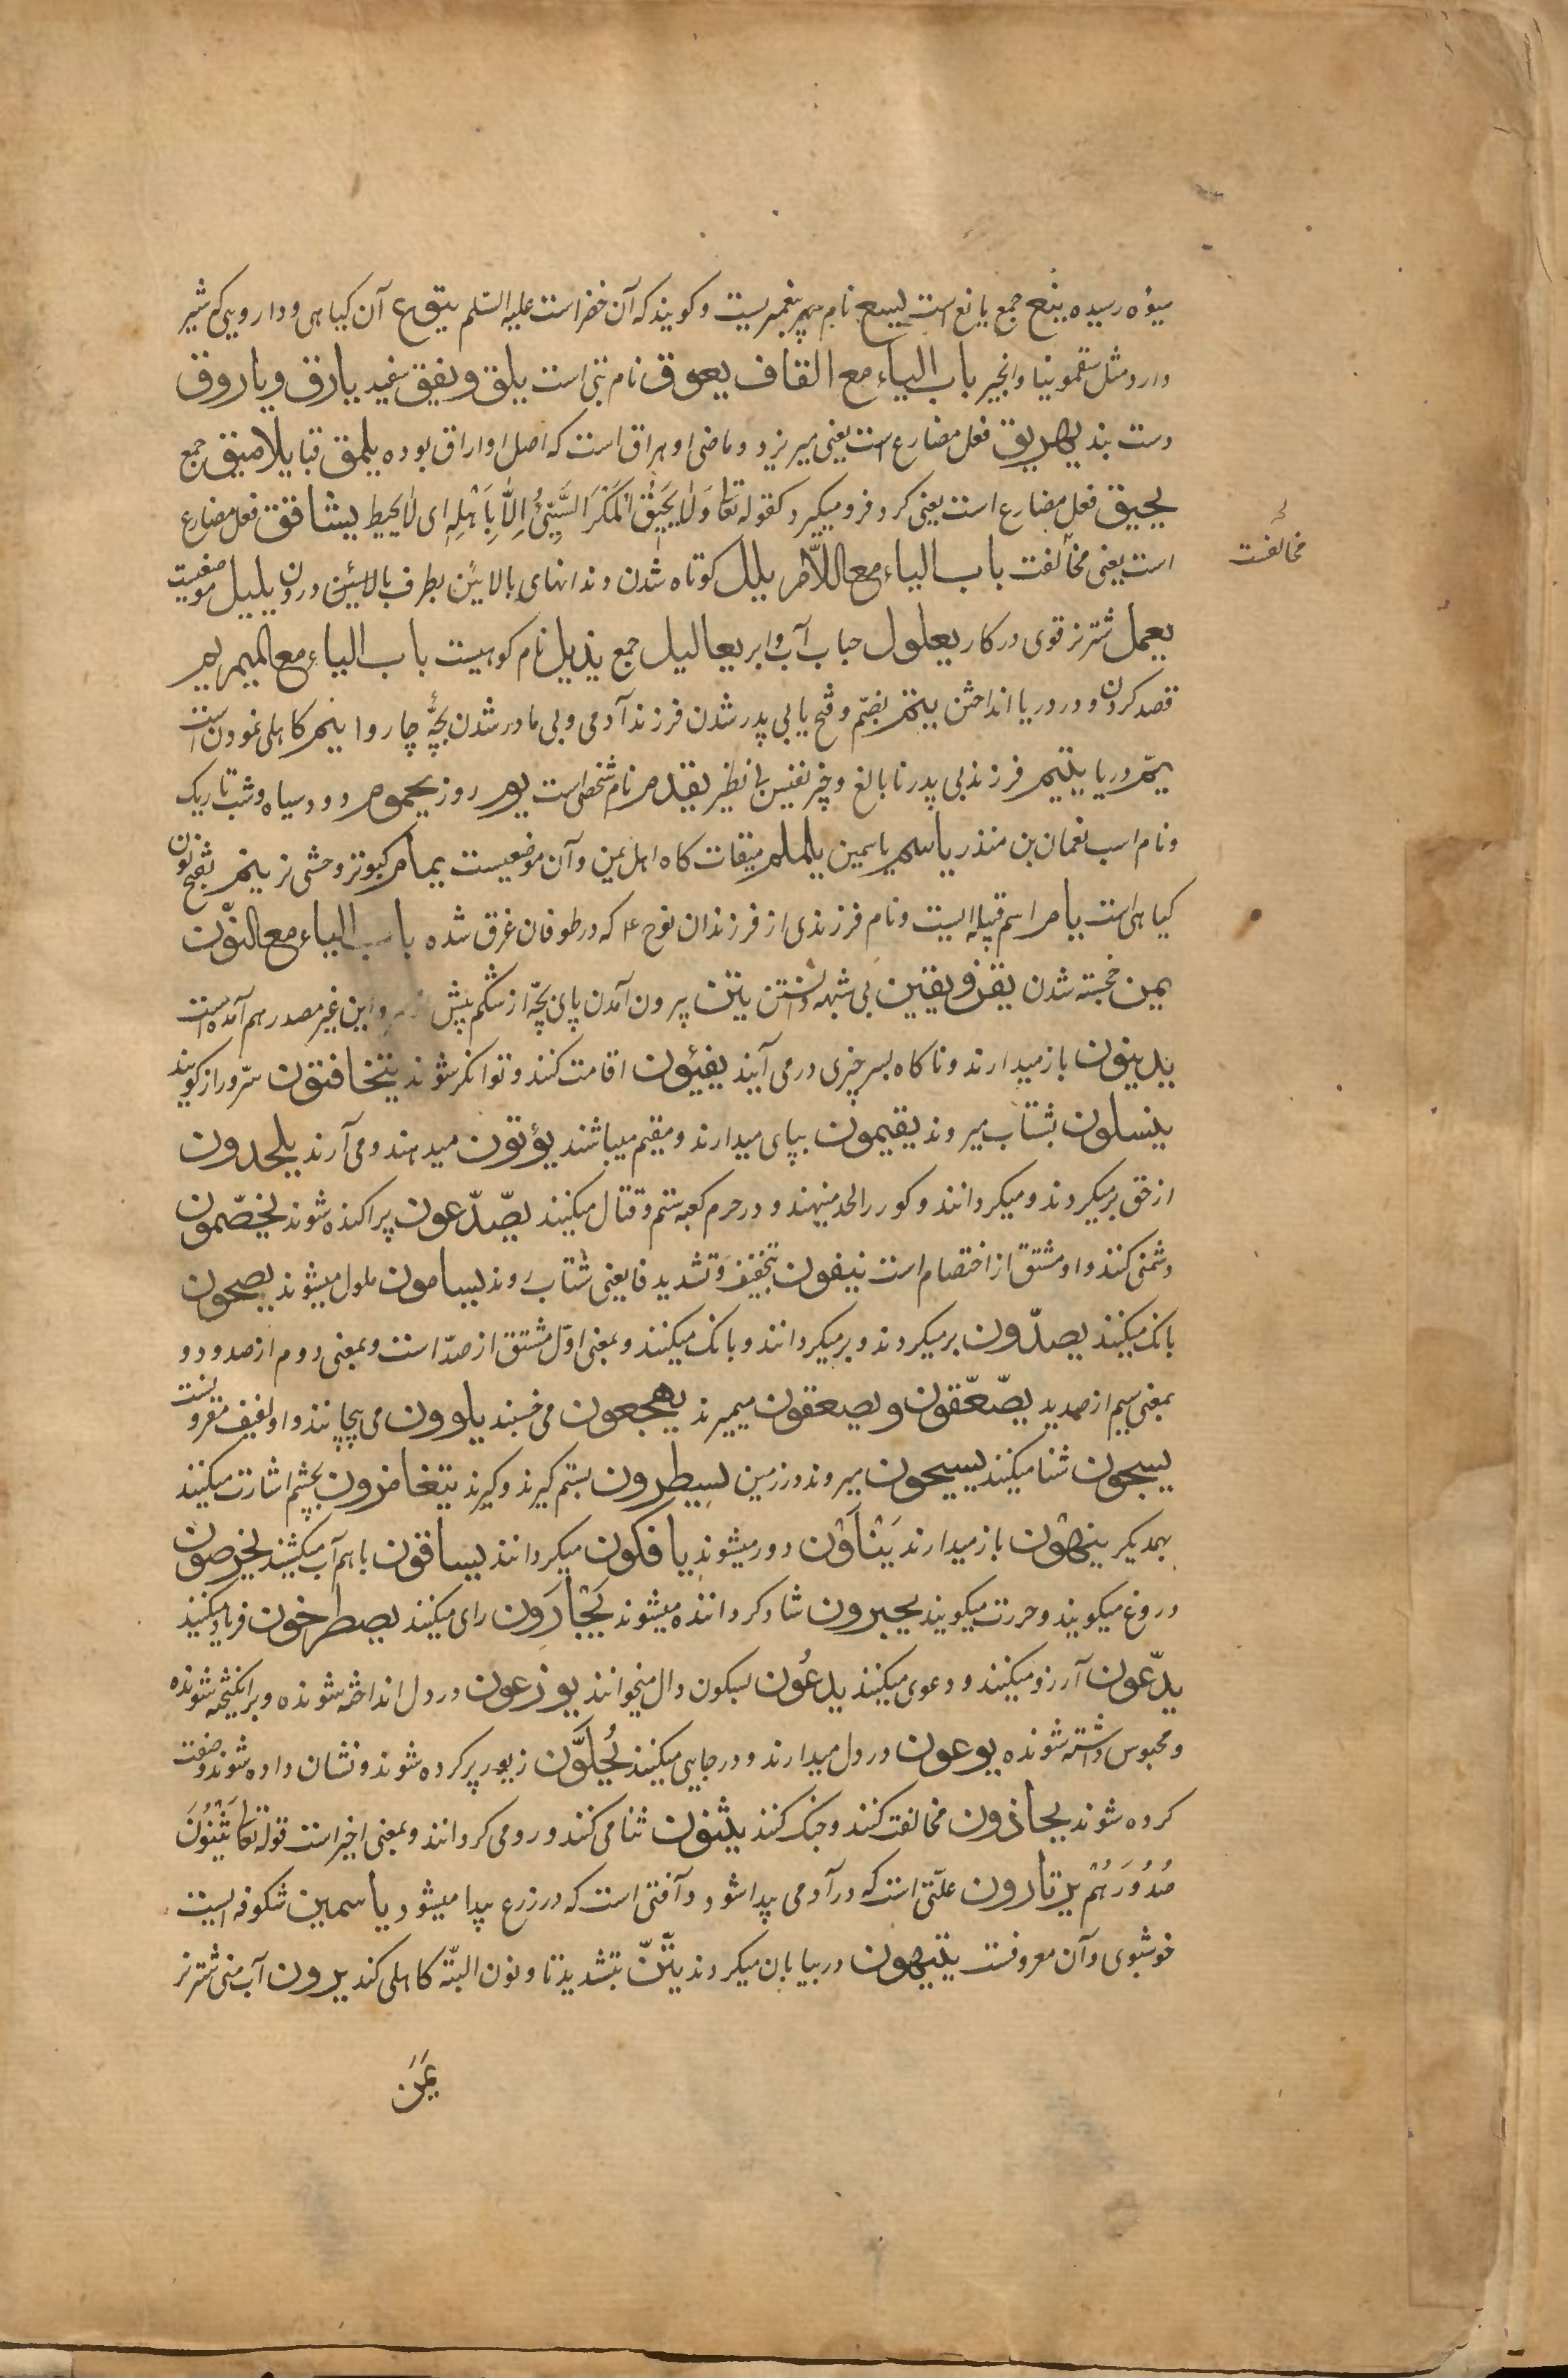 میوهٔ رسیده ینع جمع یانع است یسع نام پیغمبریست و کویند که آن خضر است علیه السّلم یتوع آن کیاهی و دارویی که شیر
دارد مثل سقمونیا و انجیر باب الیاء مع القاف یعوق نام بتی است یلق و یقق سفید یارق و یاروق
دست بند یهریق فعل مضارع است یعنی میریزد و ماضی او هراق است که اصل او اراق بوده یلمق قبا یلامیق جمع
یحیق فعل مضارع است یعنی کرد فرو میکیرد کقوله تعا وَلَا یَحِیْقُ الْمَکْرُ السَّیِّئُ اِلَّا بِاَهْلِهٖ ای لا یحیط یشاقق فعل مضارع
است یعنی مخالفت باب الیاء مع اللّام یلل کوتاه شدن دندانهای بالایین بطرف بالایین درون یلیل موضعیست
مخالفت
یعمل شتر نر قوی در کار یعلول حباب آب و ابر یعالیل جمع یذبل نام کوهیست باب الیاء مع المیم یم
قصد کردن و در دریا انداختن یتم بضمّ و فتح یا بی پدر شدن فرزند آدمی و بی مادر شدن بچّهٔ چاروا یتم کاهلی نمودن است
یمّ دریا یتیم فرزند بی پدر نابالغ و چیز نفیس بی نظیر یقدم نام شخصی است یوم روز یحموم دود سیاه و شب تاریک
و نام اسب نعمان بن منذر یاسم یاسمین یلملم میقات کاه اهل یمن و آن موضعیست یمام کبوتر وحشی نر ینم بفتح نون
کیاهی است یام اسم قبیله ایست و نام فرزندی از فرزندان نوح ع که در طوفان غرق شده باب الیاء مع النّون
یمن خجسته شدن یقن و یقین بی شبهه دانستن یتن بیرون آمدن پای بچّه از شکم پیش از سر و این غیر مصدر هم آمده است
یدینون باز میدارند و ناکاه بسر چیزی در می آیند یغنون اقامت کنند و توانکر شوند یتخافتون سرّ و راز کویند
ینسلون بشتاب میروند یقیمون بپای میدارند و مقیم میباشند یؤتون میدهند و می آرند یلحدون
از حق بر میکردند و میکردانند و کور را لحد مینهند و در حرم کعبه ستم و قتال میکنند یصّدّعون پراکنده شوند یخصّمون
دشمنی کنند و او مشتق از اختصام است یزفون بتخفیف و تشدید فا یعنی شتاب روند یسامون ملول میشوند یصیحون
بانک میکنند یصدّون بر میکردند و بر میکردانند و بانک میکنند و بمعنی اوّل مشتق از صدّ است و بمعنی دوم از صدود و
بمعنی سیم از صدید یصّعّقون و یصعقون میمیرند یهجعون می خسبند یلوون می پیچانند و او لفیف مقرونست
یسبحون شنا میکنند یسیحون میروند در زمین یسیطرون بستم کیرند و کیرند یتغامزون بچشم اشارت میکنند
بهمدیکر ینهون باز میدارند یَنْأَوْن دور میشوند یافکون میکردانند یساقون با هم آب میکشند یخرصون
دروغ میکویند و حررت میکویند یحبرون شاد کردانیده میشوند یَجْأَرَون رای میکنند یصطرخون فریاد میکنند
یدّعون آرزو میکنند و دعوی میکنند یدعُون بسکون دال میخوانند یوزعون در دل انداخته شونده و برانکیخته شونده
و محبوس داشته شونده یوعون در دل میدارند و در جایی میکنند یُحلَّون زیور پر کرده شوند و نشان داده شوند و صفت
کرده شوند یحاذون مخالفت کنند و جنک کنند یثنون ثنا می کنند و رو می کردانند و بمعنی اخیر است قوله تعا یَثْنُوْنَ
صُدُوْرَهُمْ یرقارون علّتی است که در آدمی پیدا شود و آفتی است که در زرع پیدا میشود یاسمین شکوفه ایست
خوشبوی و آن معروفست یتیهون در بیابان میکردند یتّنّ بتشدید تا و نون البتّه کاهلی کند یرون آب منی شتر نر
یَمَن